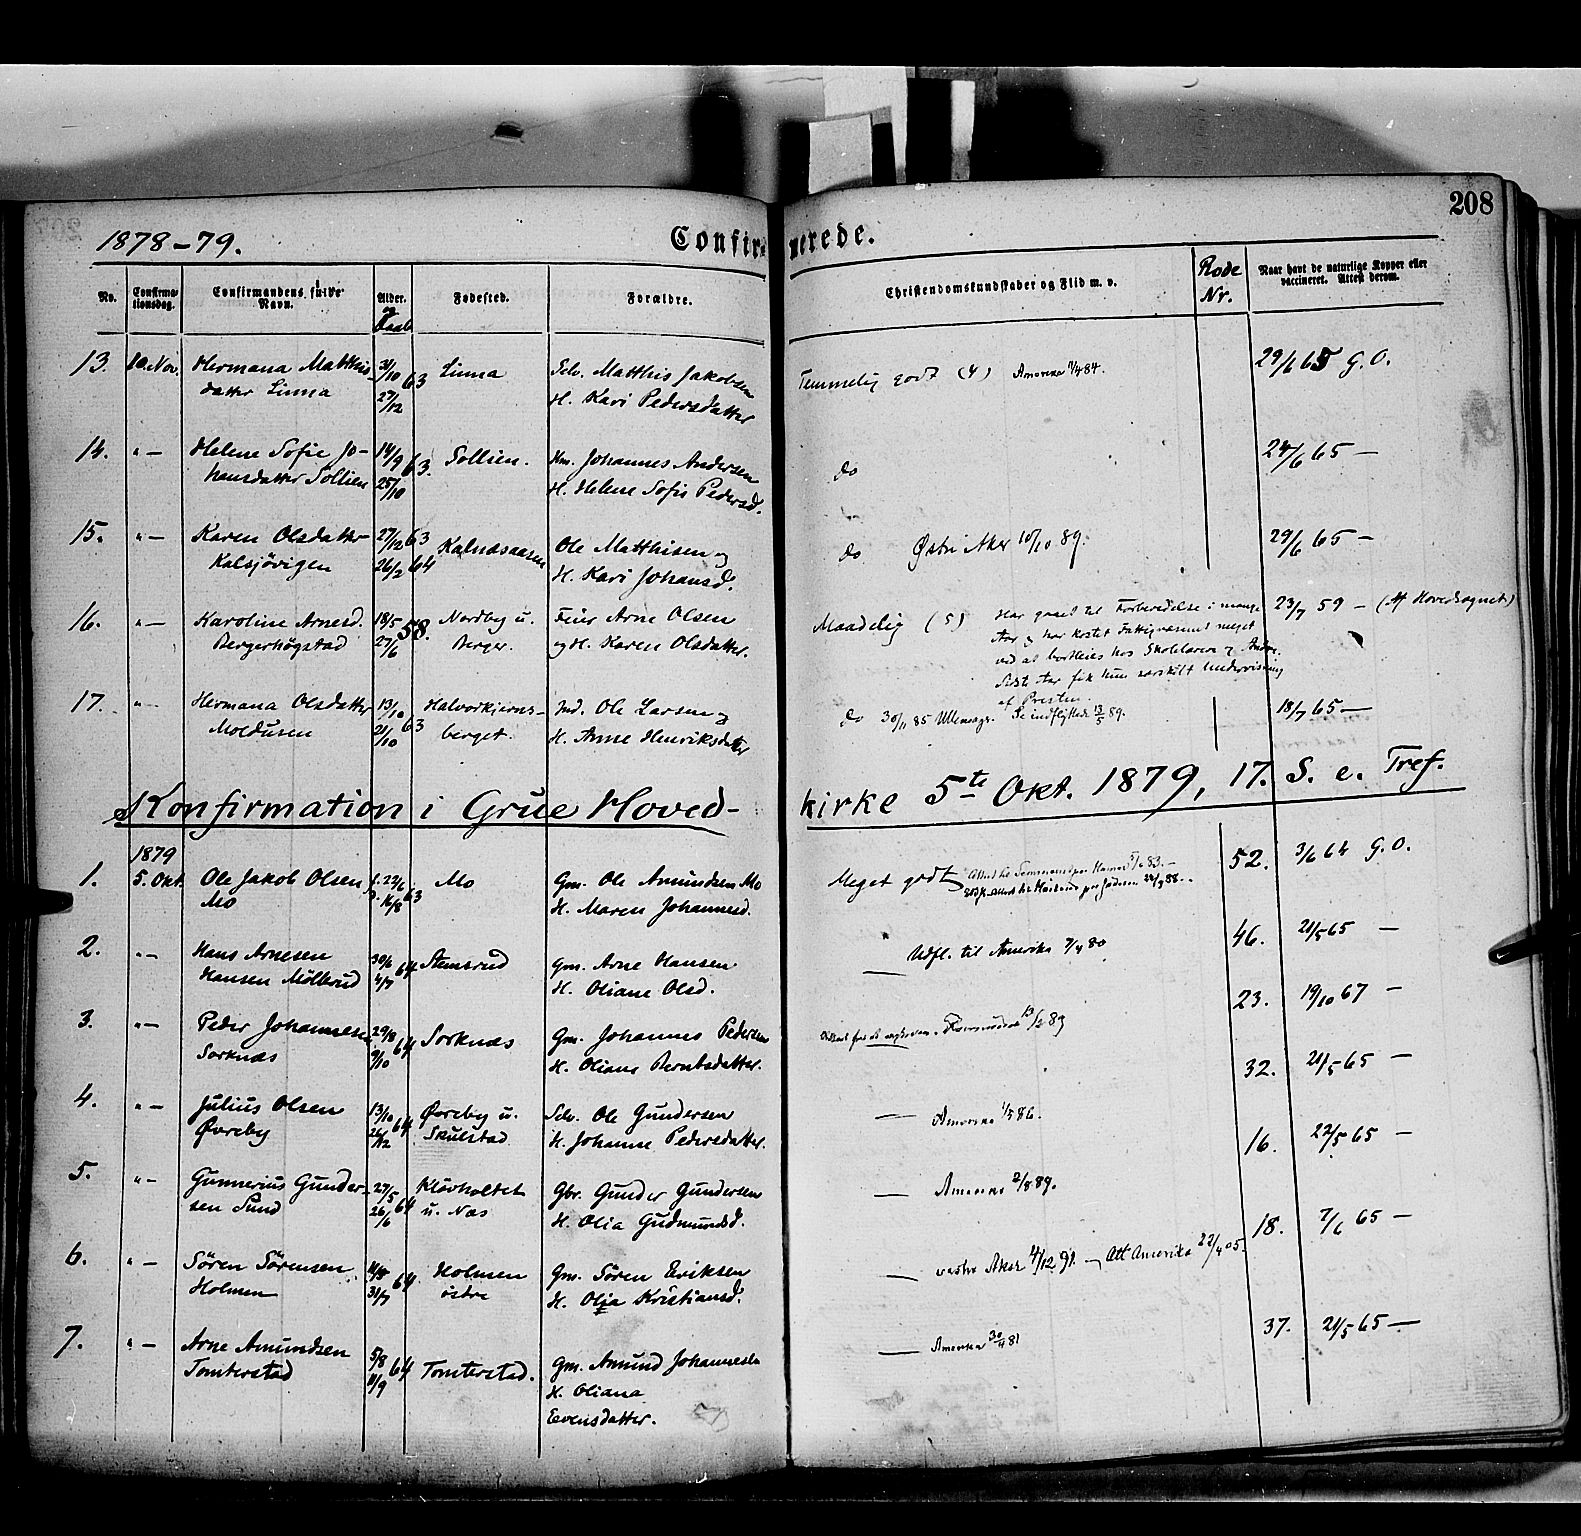 208
1878-79.
Confirmerede.
No.
Confirmationsdag.
Confirmandens fulde Navn.
Alder.
Daab
Fødested.
Forældre.
Christendomskundskaber og Flid m. v.
Rode Nr.
Naar havt de naturlige Kopper eller vaccineret. Attest derom.
13. 10. Nov. Hermana Matthis- 31/10 63 Linna Selv. Matthis Jakobsen Temmelig godt (4) Amerika 84. 29/6 65 G.O.
datter Linna 27/12 H. Kari Pedersdatter
14. "— Helene Sofie Jo- 14/9 63. Sollien. Johannes Andersen do 24/6 65 —
hansdatter Sollien 25/10 H. Helene Sofie Pedersd.
15. "— Karen Olsdatter 27/12 63 Kalnæsaasen Ole Matthisen og do Østre Aker 10/10 89. 29/6 65 —
Kalsjövigen 26/2 64 H. Kari Johansd.
16. "— Karoline Arnesd. 18/5 58. Nordby u. Arne Olsen Maadelig (5) Har gaaet til Forberedelse i mange 23/7 59 — (Af Hovedsognet)
Bergerhögstad 27/6 Berger. og H. Karen Olsdatter. Aar og har kostet Fattigvæsenet meget
ved at bortleies hos Skolelærere og Andre.
Sidste Aar fik hun særskilt Undervisning
af Presten.
17. "— Hermana Olsdatter 13/10 63 Halvorkjerns- Ind. Ole Larsen og do 30/11 85 Ullensager. Gjeindflyttede 13/5 89. 18/7 65 —
Moldusen 21/10 berget. H. Anne Henriksdatter
Konfirmation i Grue Hoved-kirke 5te Okt. 1879, 17. S. e. Tref.
1879
1. 5. Okt. Ole Jakob Olsen f. 22/6 63 Mo Gm. Ole Amundsen Mo Meget godt 52. 3/6 64 G.O.
Mo 16/8 H. Maren Johannesd.
2. "— Hans Arnesen 30/6 64 Stemsrud Gm. Arne Hansen — Udfl. til Amerika 7/4 80 46. 21/5 65 —
Hansen Mölbrud 4/7 H. Oliane Olsd.
3. "— Peder Johannesen 29/8 64 Sorknæs Gm. Johannes Pedersen 13/2 89 23. 19/10 67 —
Sorknæs 9/10 H. Oliane Berntsdatter.
4. "— Julius Olsen 13/10 64 Øvreby u. Selv. Ole Gundersen — Amerika 86. 32. 21/5 65 —
Øvreby 26/12 Skulstad H. Johanne Pedersdatter.
5. "— Gunnerius Gunder- 27/5 64 Klövholtet Gbr. Gunder Gundersen — Amerika 2/8 89. 16. 22/5 65 —
sen Sund 26/6 u. Næs H. Olia Gudmundsd.
6. "— Sören Sörensen 64 Holmen Gm. Sören Eriksen — vestre Aker 4/12 91. — Att Amerika 22/4 05. 18. 7/6 65 —
Holmen 31/7 östre H. Olia Kristiansd.
7. "— Arne Amundsen 5/8 64 Tomterstad. Gm. Amund Johannesen — Amerika 30/4 81 37. 21/5 65 —
Tomterstad 11/9 H. Oliana
Evensdatter.